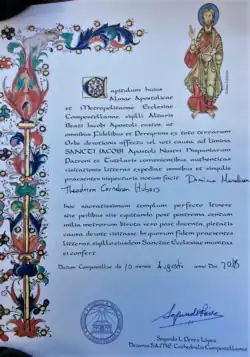 Capitulum huius
Almae Apostolicae
et Metropolitanae Ecclesiae
Compostellanae, sigilli Altaris
Beati Iacobi Apostoli custos, ut
omnibus Fidelibus et Peregrinis ex toto terrarum
Orbe, devotionis affectu vel voti causa, ad limina
SANCTI IACOBI, Apostoli Nostri Hispaniarum
Patroni et Tutelaris convenientibus, authenticas
visitationis litteras expediat, omnibus et singulis
praesentes inspecturis, notum facit:
Theodorum Cornelium
hoc sacratissimum templum, perfecto itinere
sive pedibus sive equitando post postrema centum
milia metrorum, birota vero post ducenta, pietatis
causa, devote visitasse. In quorum fidem praesentes
litteras, sigillo eiusdem Sanctae Ecclesiae munitas
ei confert.
Datum Compostellae die 10 mensis Augusti anno Dni 2018
Segundo L. Pérez López
Decanus S.A.M.E. Cathedralis Compostellanae